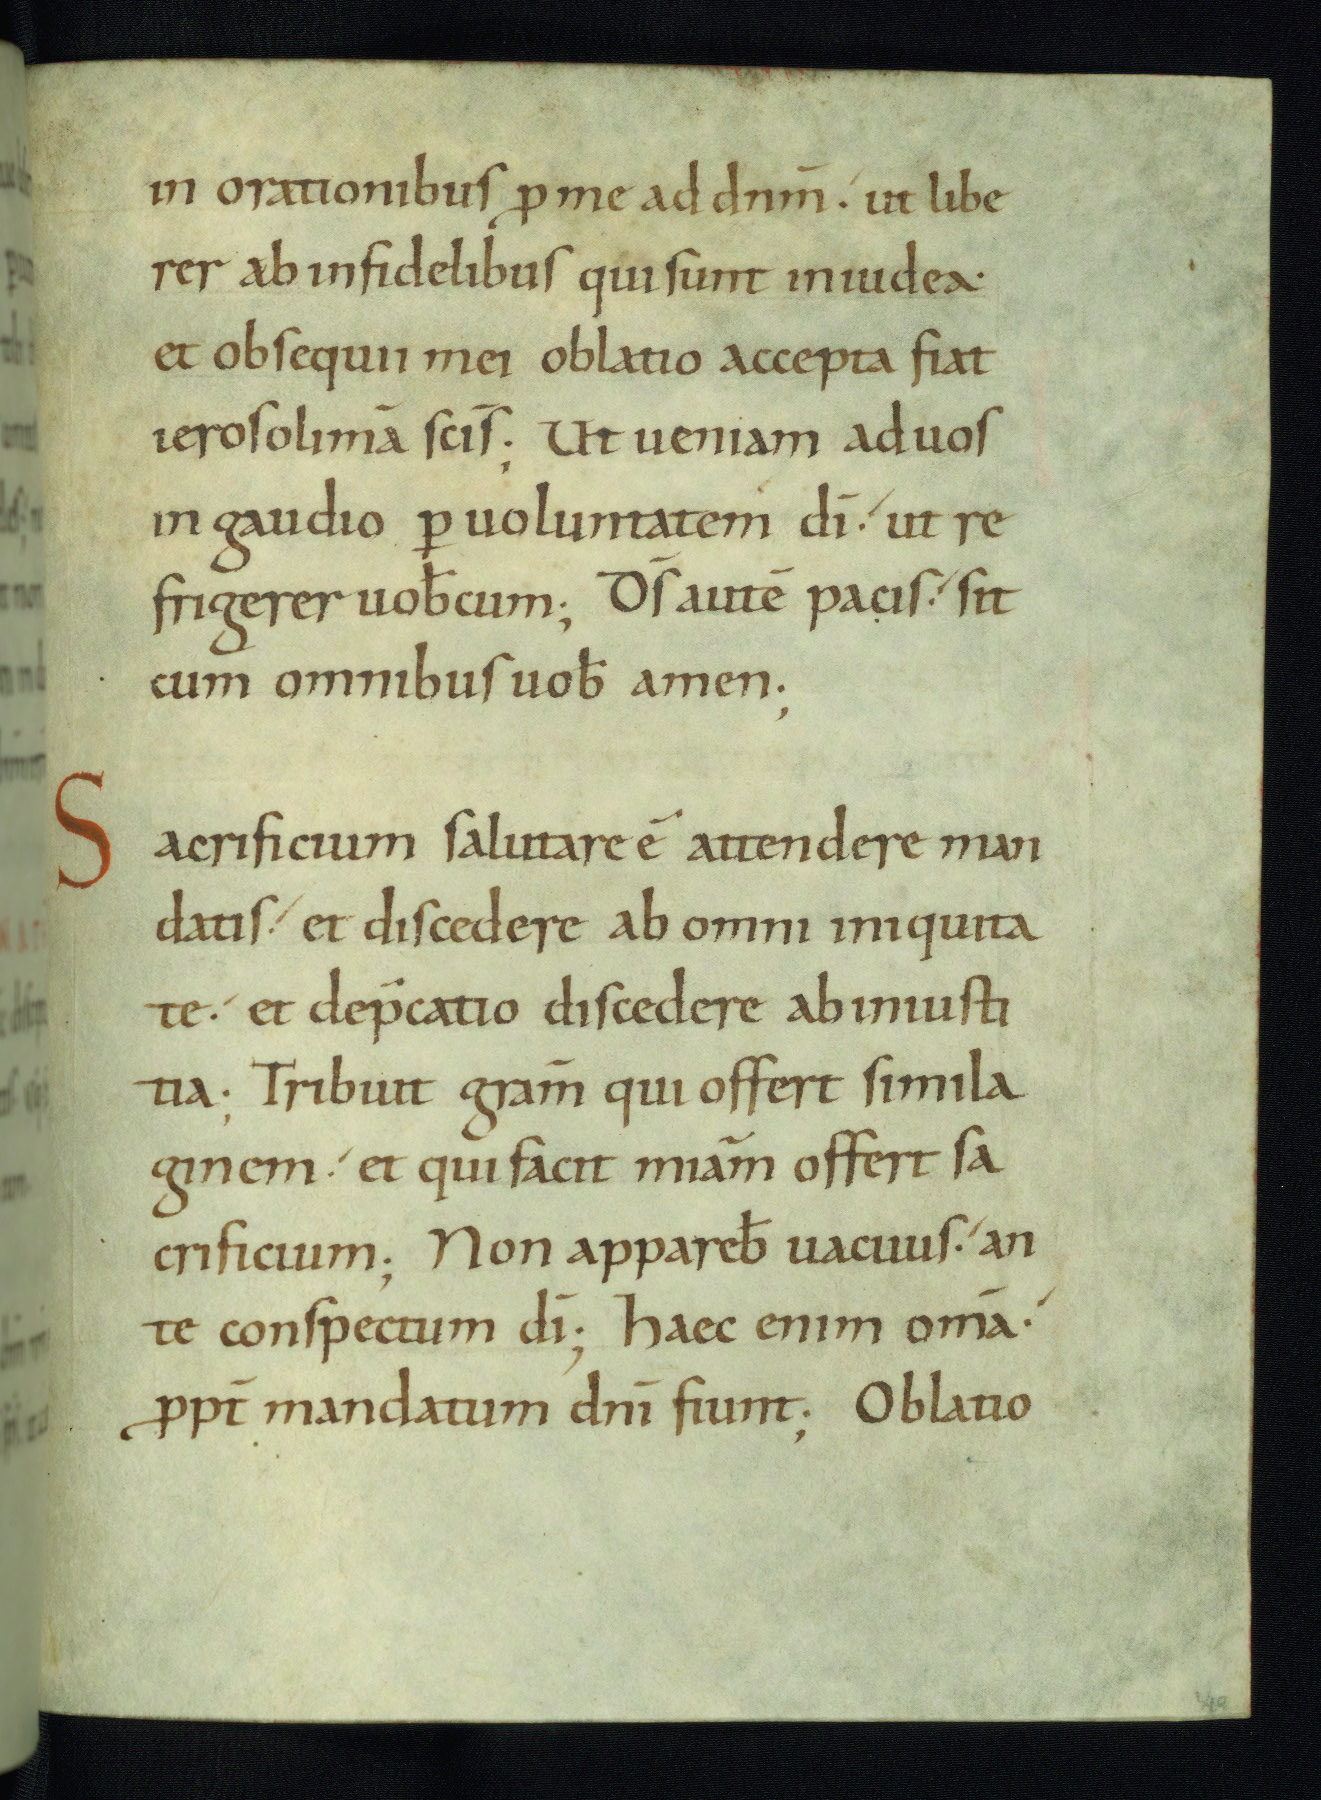 in orationibus ꝓ me ad dnm̄. ut libe
rer ab infidelibus qui sunt in iudea.
et obsequii mei oblatio accepta fiat
ierosolimā scīs; Ut ueniam ad uos
in gaudio ꝑ uoluntatem dī. ut re
frigerer uob̄cum; Ds̄ autē pacis. sit
cum omnibus uob̄ amen;
Sacrificium salutare ē attendere man
datis. et discedere ab omni iniquita
te. et dep̄catio discedere ab iniusti
tia; Tribuit gram̄ qui offert simila
ginem. et qui facit miam̄ offert sa
crificium; Non appareb̄ uacuus. an
te conspectum dī; haec enim omā.
ꝓpt̄ mandatum dnī fiunt; Oblatio